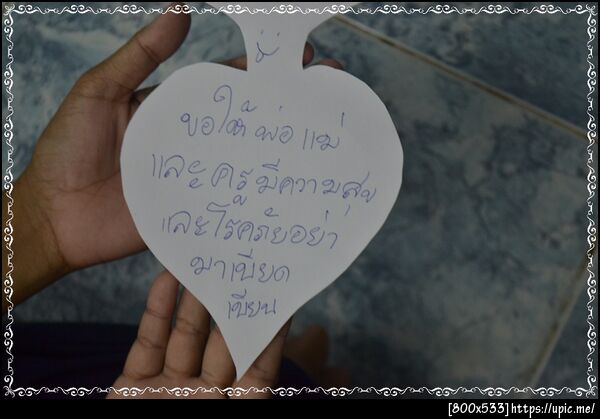 ขอให้ พ่อ แม่
และ ครู มีความสุข
และโรคภัยอย่า
มาเบียด
เบียน
[800x533] https://upic.me/